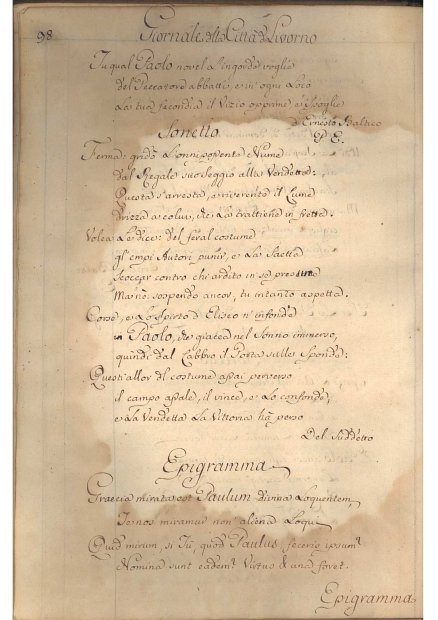 98
Giornale della Città di Livorno
Tu qual Paolo novel l'ingorde voglie
del Peccatore abbatti, e in ogni Loco
La tua facondia il Vizio opprime, e spoglie
d'Ernesto Baltico
P. E.
Sonetto
Ferma: gridò L'onnipotente Nume
dal Regale suo Seggio alla Vendetta:
Questa s'arresta, e riverente il Lume
a colui, che La trattiene in fretta.
Volea Le dice: del feral costume
gl'empi Autori punir, e La Saetta
Scoccar contro chi ardito in se presume
Ma nò: sospendo ancor, tu intanto aspetta.
Corse, e Lo Spirto d'Eliseo n'infonde
in Paolo, che giacea nel Sonno immerso,
quindi dal Labbro il Porta sulle Sponde:
Quest'allor del costume assai perverso
il campo assale, il vince, e Lo confonde,
e La Vendetta La Vittoria hà perso
Del Suddetto
Epigramma
Graecia mirata est Paulum divina Loquentem,
Te nos miramur non aliena Loqui
Quid mirum, si Tu, quod Paulus, feceris ipsum?
Nomina sunt eadem: Virtus & una fovet.
Epigramma